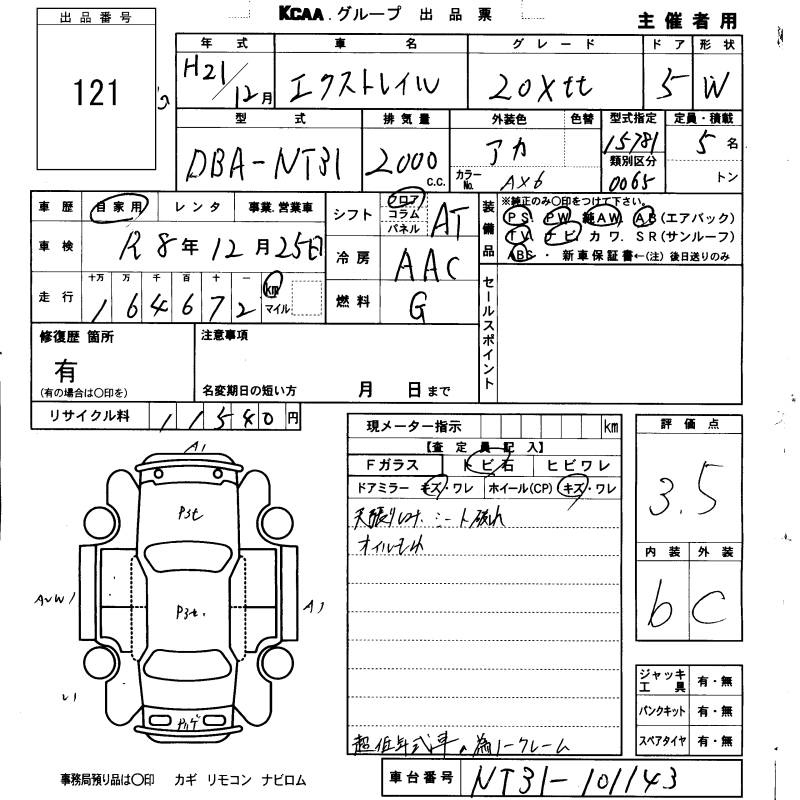 出品番号
121
KCAA.グループ 出品票
主催者用
年式 車名 グレード ドア 形状
H21/12月 エクストレイル 20Xtt 5 W
型式 排気量 外装色 色替 型式指定 定員・積載
DBA-NT31 2000 C.C. アカ 15781 5名
カラーNo. AX6 類別区分 0065 トン
車歴 自家用 レンタ 事業.営業車
車検 R8年12月25日
走行 十万 万 千 百 十 一
1 6 4 6 7 2 km マイル
シフト フロア コラム パネル AT
冷房 AAC
燃料 G
装備品
※純正のみ○印をつけて下さい。
PS PW 純AW AB(エアバック)
TV ナビ カワ. SR(サンルーフ)
ABS・新車保証書←(注)後日送りのみ
セールスポイント
修復歴 箇所
有
(有の場合は○印を)
注意事項
名変期日の短い方 月 日まで
リサイクル料 11540円
現メーター指示 km
【査定員記入】
Fガラス トビ石 ヒビワレ
ドアミラー キズ・ワレ ホイール(CP) キズ・ワレ
シート破れ
オイルモレ
超低年式車の為ノークレーム
評価点
3.5
内装 外装
b C
ジャッキ工具 有・無
パンクキット 有・無
スペアタイヤ 有・無
A1
P3t
P3t.
A1
事務局預り品は○印 カギ リモコン ナビロム
車台番号 NT31-101143